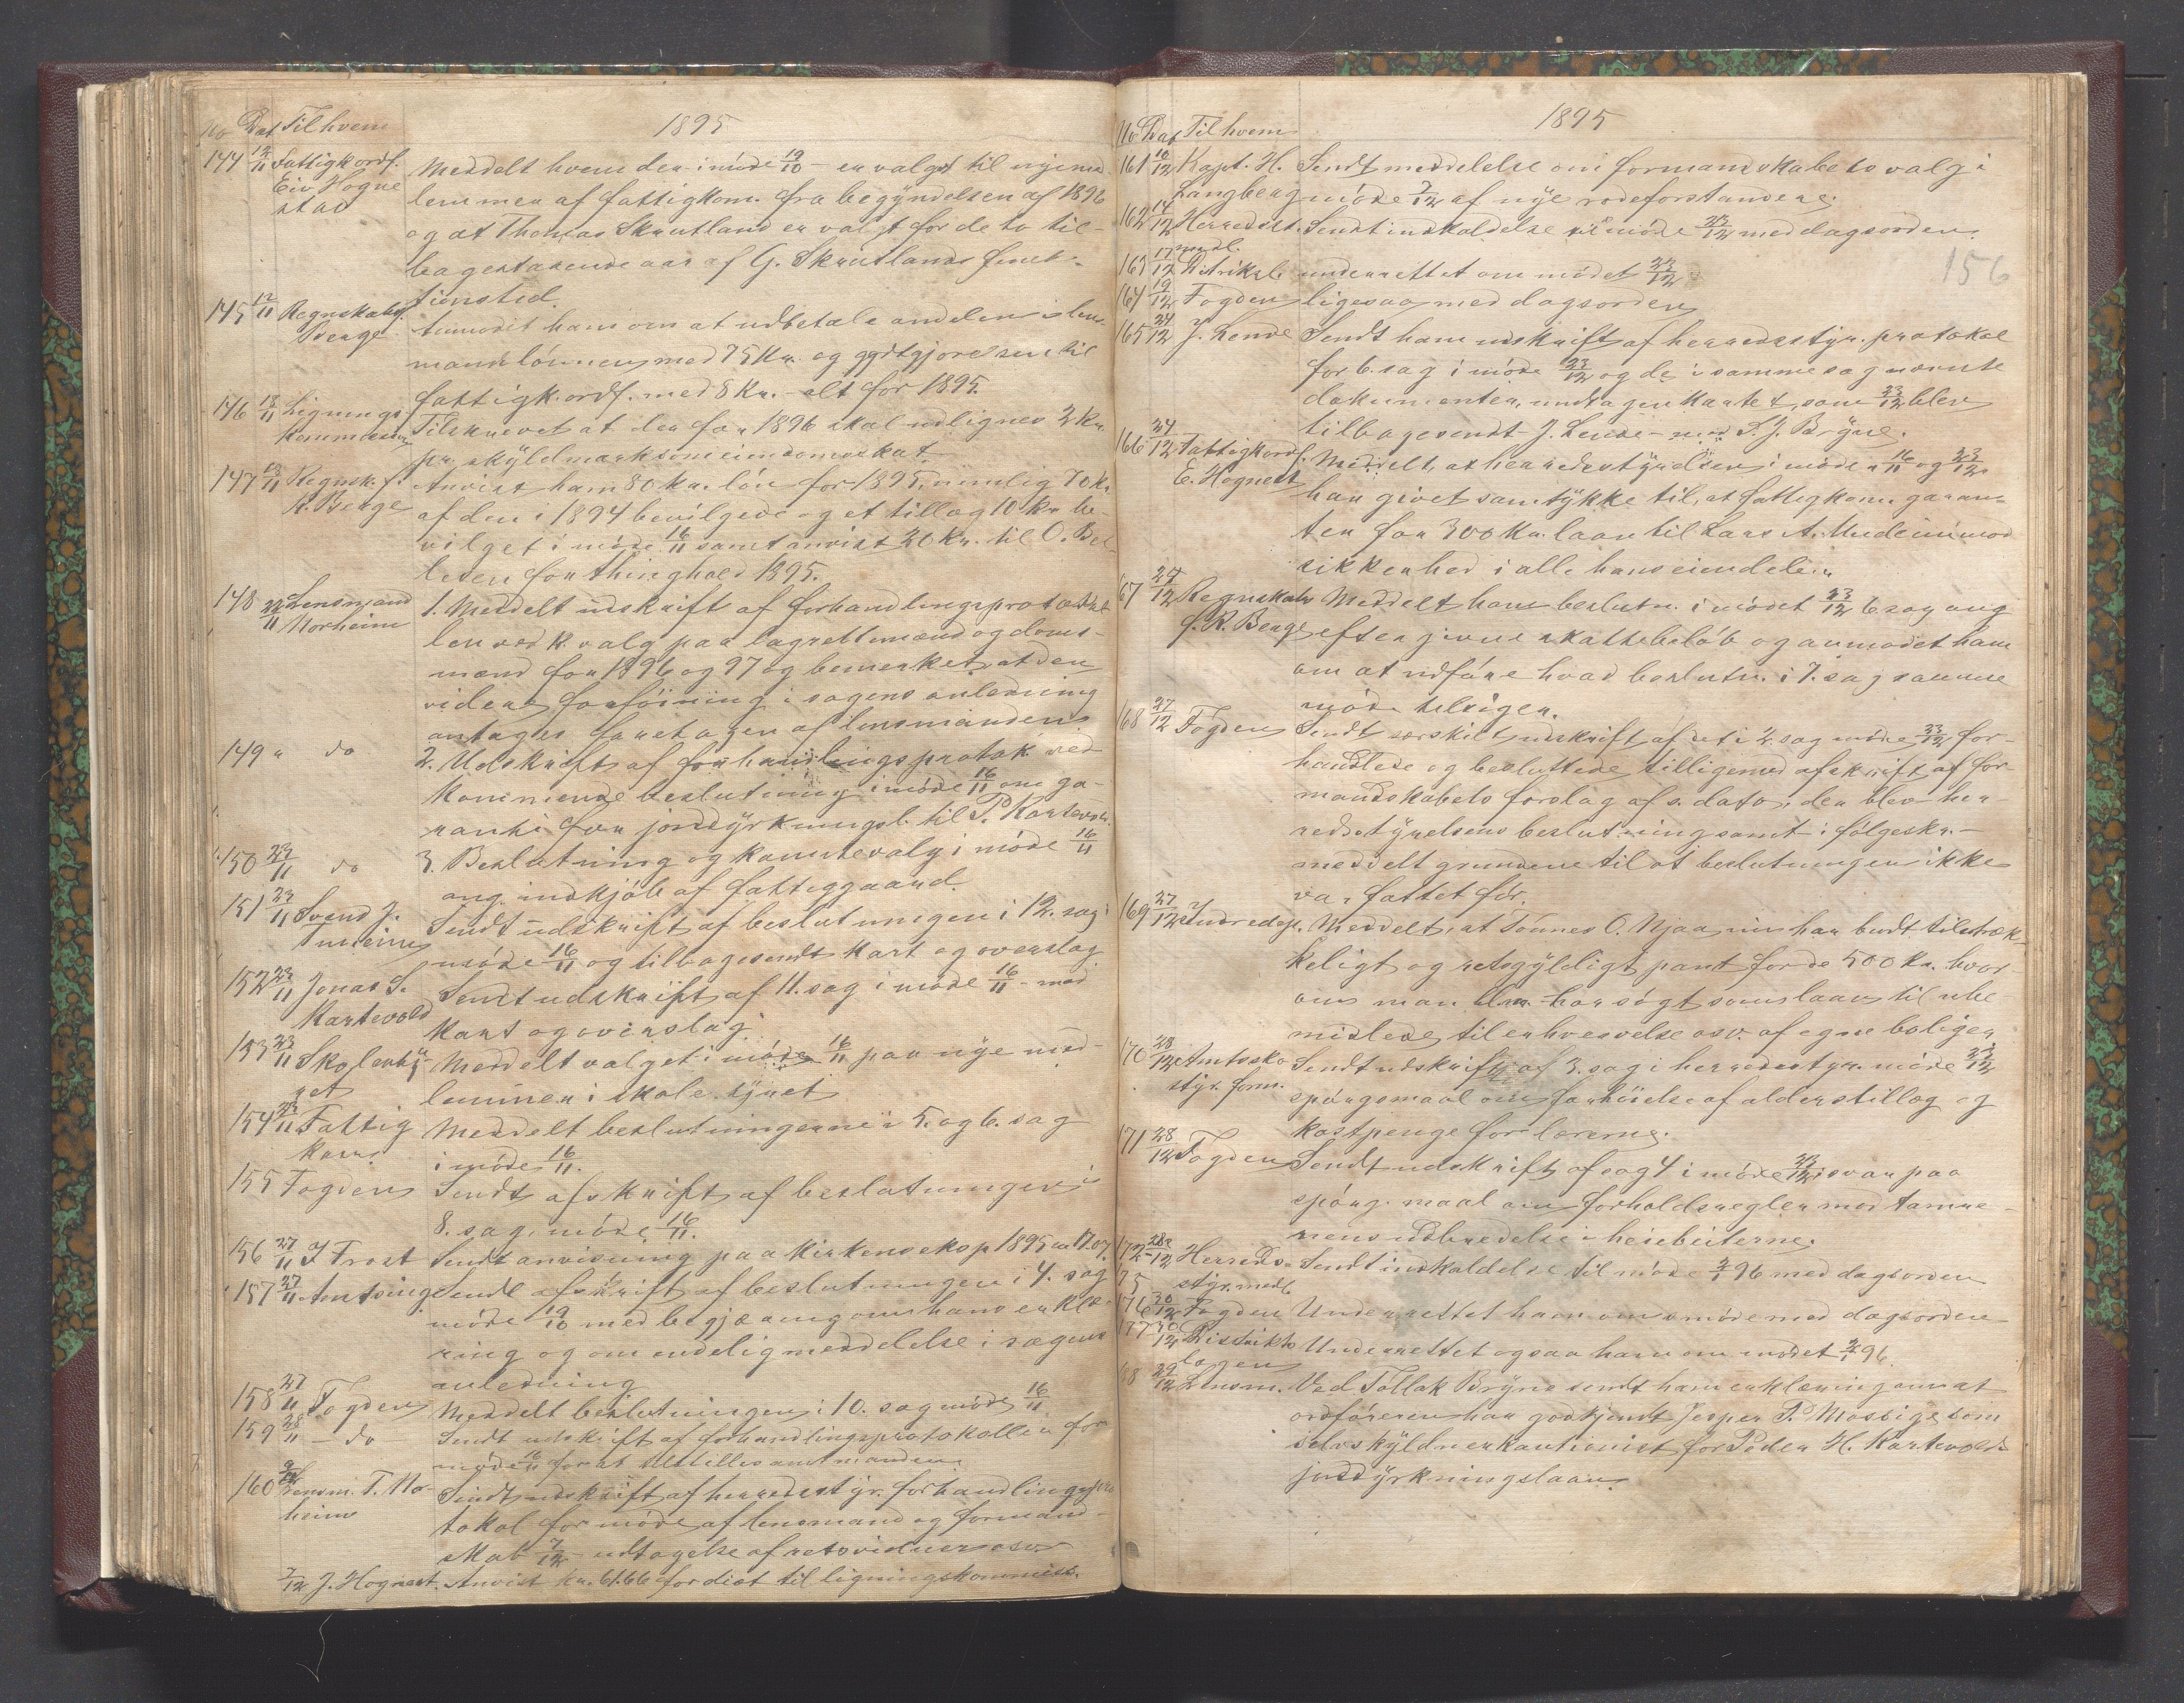 No Dat Til hvem 1895
144 12/11 Fattigk ordf. Meddelt hvem der i möde 19/10 – er valgt til nye med
Eiv Hogne lemmer af fattigkom. fra begyndelsen af 1896
stad og at Thomas Skrutland er valgt for de to til-
bagestaaende aar af G. Skrutlands funk-
tionstid.
145 12/11 Regnskabsf. Anmodet ham om at udbetale andelen i lens-
Berge mandslönnen med 75 Kr. og godtgjørelsen til
fattigk. ordf. med 8 Kr. – alt for 1895.
146 18/11 Lignings Tilskrevet at der for 1896 skal udlignes 2 kr.
Kommissionen pr. skyldmark som eiendomsskat
147 18/11 Regnsk. f. Anvist ham 80 kr. lön for 1895, nemlig 70 kr.
R. Berge af den i 1894 bevilgede og et tillæg 10 kr be-
vilget i möde 16/11 samt anvist 20 Kr. til O.
for thinghold 1895.
148 22/11 Lensmand 1. Meddelt udskrift af forhandlingsprotokol
Norheim len vedk. valg paa lagrettemænd og doms-
mænd for 1896 og 97 og bemerket, at den
videre forföining i sagens anledning
antages foretagen af lensmanden
149 " do 2. Udskrift af forhandlingsprotok ved-
kommende beslutning i möde 16/11 om ga-
ranti for jorddyrkningsl. til P. Kartevold.
150 23/11 do 3. Beslutning og komitevalg i möde 16/11
ang. indkjöb af fattiggaard.
151 23/11 Svend J. Sendt udskrift af beslutningen i 12. sag i
Tunheim möde 16/11 og tilbagesendt kart og overslag
152 23/11 Jonas S. Sendt udskrift af 11. sag i möde 16/11 – med
Kartevold kart og overslag
153 23/11 Skolesty- Meddelt valget i möde 16/11 paa nye med-
ret lemmer i skolestyret
154 23/11 Fattig Meddelt beslutningerne i 5. og 6. sag
kom. i möde 16/11.
155 Fogden Sendt afskrift af beslutningen i
8. sag, möde 16/11.
156 27/11 I Trost Sendt anvisning paa kirkens eksp 1895 17.07
157 27/11 Amtsing Sendt afskrift af beslutningen i 4. sag
möde 19/10 med begjæring om hans erklæ-
ring og om endelig meddelelse i sagens
anledning
158 27/11 Fogden Meddelt beslutningen i 10. sag möde 16/11
159 28/11 – do Sendt udskrift af forhandlingsprotokollen for
möde 16/11 for at tilstilles amtmanden.
160 9/12 Lensm. T. No- Sendt udskrift af herredsstyr. forhandlingspro
heim tokol for möde af lensmand og formand-
skab 7/12 – udtagelse af retsvidner osv
7/12 J. Hognest. Anvist kr. 61.66 for diæt til ligningskommiss.
No Dat Til hvem 1895
156
161 10/12 Kapt. H. Sendt meddelelse om formandskabets valg i
Langberg möde 7/12 af nye rodeforstandere.
162 14/12 Herredsst. Sendt indkaldelse til möde 23/12 med dagsorden.
medl.
163 17/12 Distriksl. underrettet om mödet 23/12
164 19/12 Fogden ligesaa med dagsorden
165 24/12 J. Lende Sendt ham udskrift af herredsstyr. protokol
for 6. sag i möde 23/12 og de i samme sag nævnte
dokumenter, undtagen kartet, som 23/12 blev
tilbagesendt J. Lende – med S. J. Bryne.
166 24/12 Fattigk ordf. Meddelt, at herredsstyrelsen i möder 16/11 og 23/12
E. Hognest har givet samtykke til, at fattigkom garan-
terer for 300 Kr. laan til Lars A. Undeim mod
sikkerhed i alle hans eiendele.
67 24/12 Regnskabs Meddelt ham beslutn. i mödet 23/12 6 sag ang
f. R. Berge eftergivne skattebelöb og anmodet ham
om at udföre hvad beslutn. i 7. sag samme
möde tilsiger.
168 27/12 Fogden Sendt særskilt udskrift af det i 2. sag möde 23/12 for-
handlede og besluttede tilligemed afskrift af for-
mandskabets forslag af s. dato, der blev her-
redsstyrelsens beslutning samt i fölgeskr. –
meddelt grundene til at beslutningen ikke
var fattet för.
169 27/12 Indredep. Meddelt, at Tönnes O. Njaa, nu har budt tilstræk-
keligt og retsgyldigt pant for de 500 Kr. hvor-
om man har sögt som laan til ube-
midlede til erhvervelse osv. af egne boliger
170 28/12 Amtssko Sendt udskrift af 3. sag i herredsstyr. möde 23/12
styr. form. spörgsmaal om forhöielse af alderstillæg og
kostpenge for lærerne.
171 28/12 Fogden Sendt udskrift af sag 4 i möde 23/12 svar paa
spörg. maal om forholdsregler mod tamre-
nens udbredelse i heiebeiterne.
172 28/12 Herreds- Sendt indkaldelse til möde 2/1 96 med dagsorden
75 styr. medl.
176 30/12 Fogden Underrettet ham om möde med dagsorden
177 30/12 Distrikts Underrettet ogsaa ham om mödet 2/1 96.
lægen
78 29/12 Lensm. Ved Tollak Bryne sendt ham erklæring om at
ordföreren har godkjendt Jesper P. Mossige som
selvskyldnerkautionist for Peder H. Kartevolds
jorddyrkningslaan.